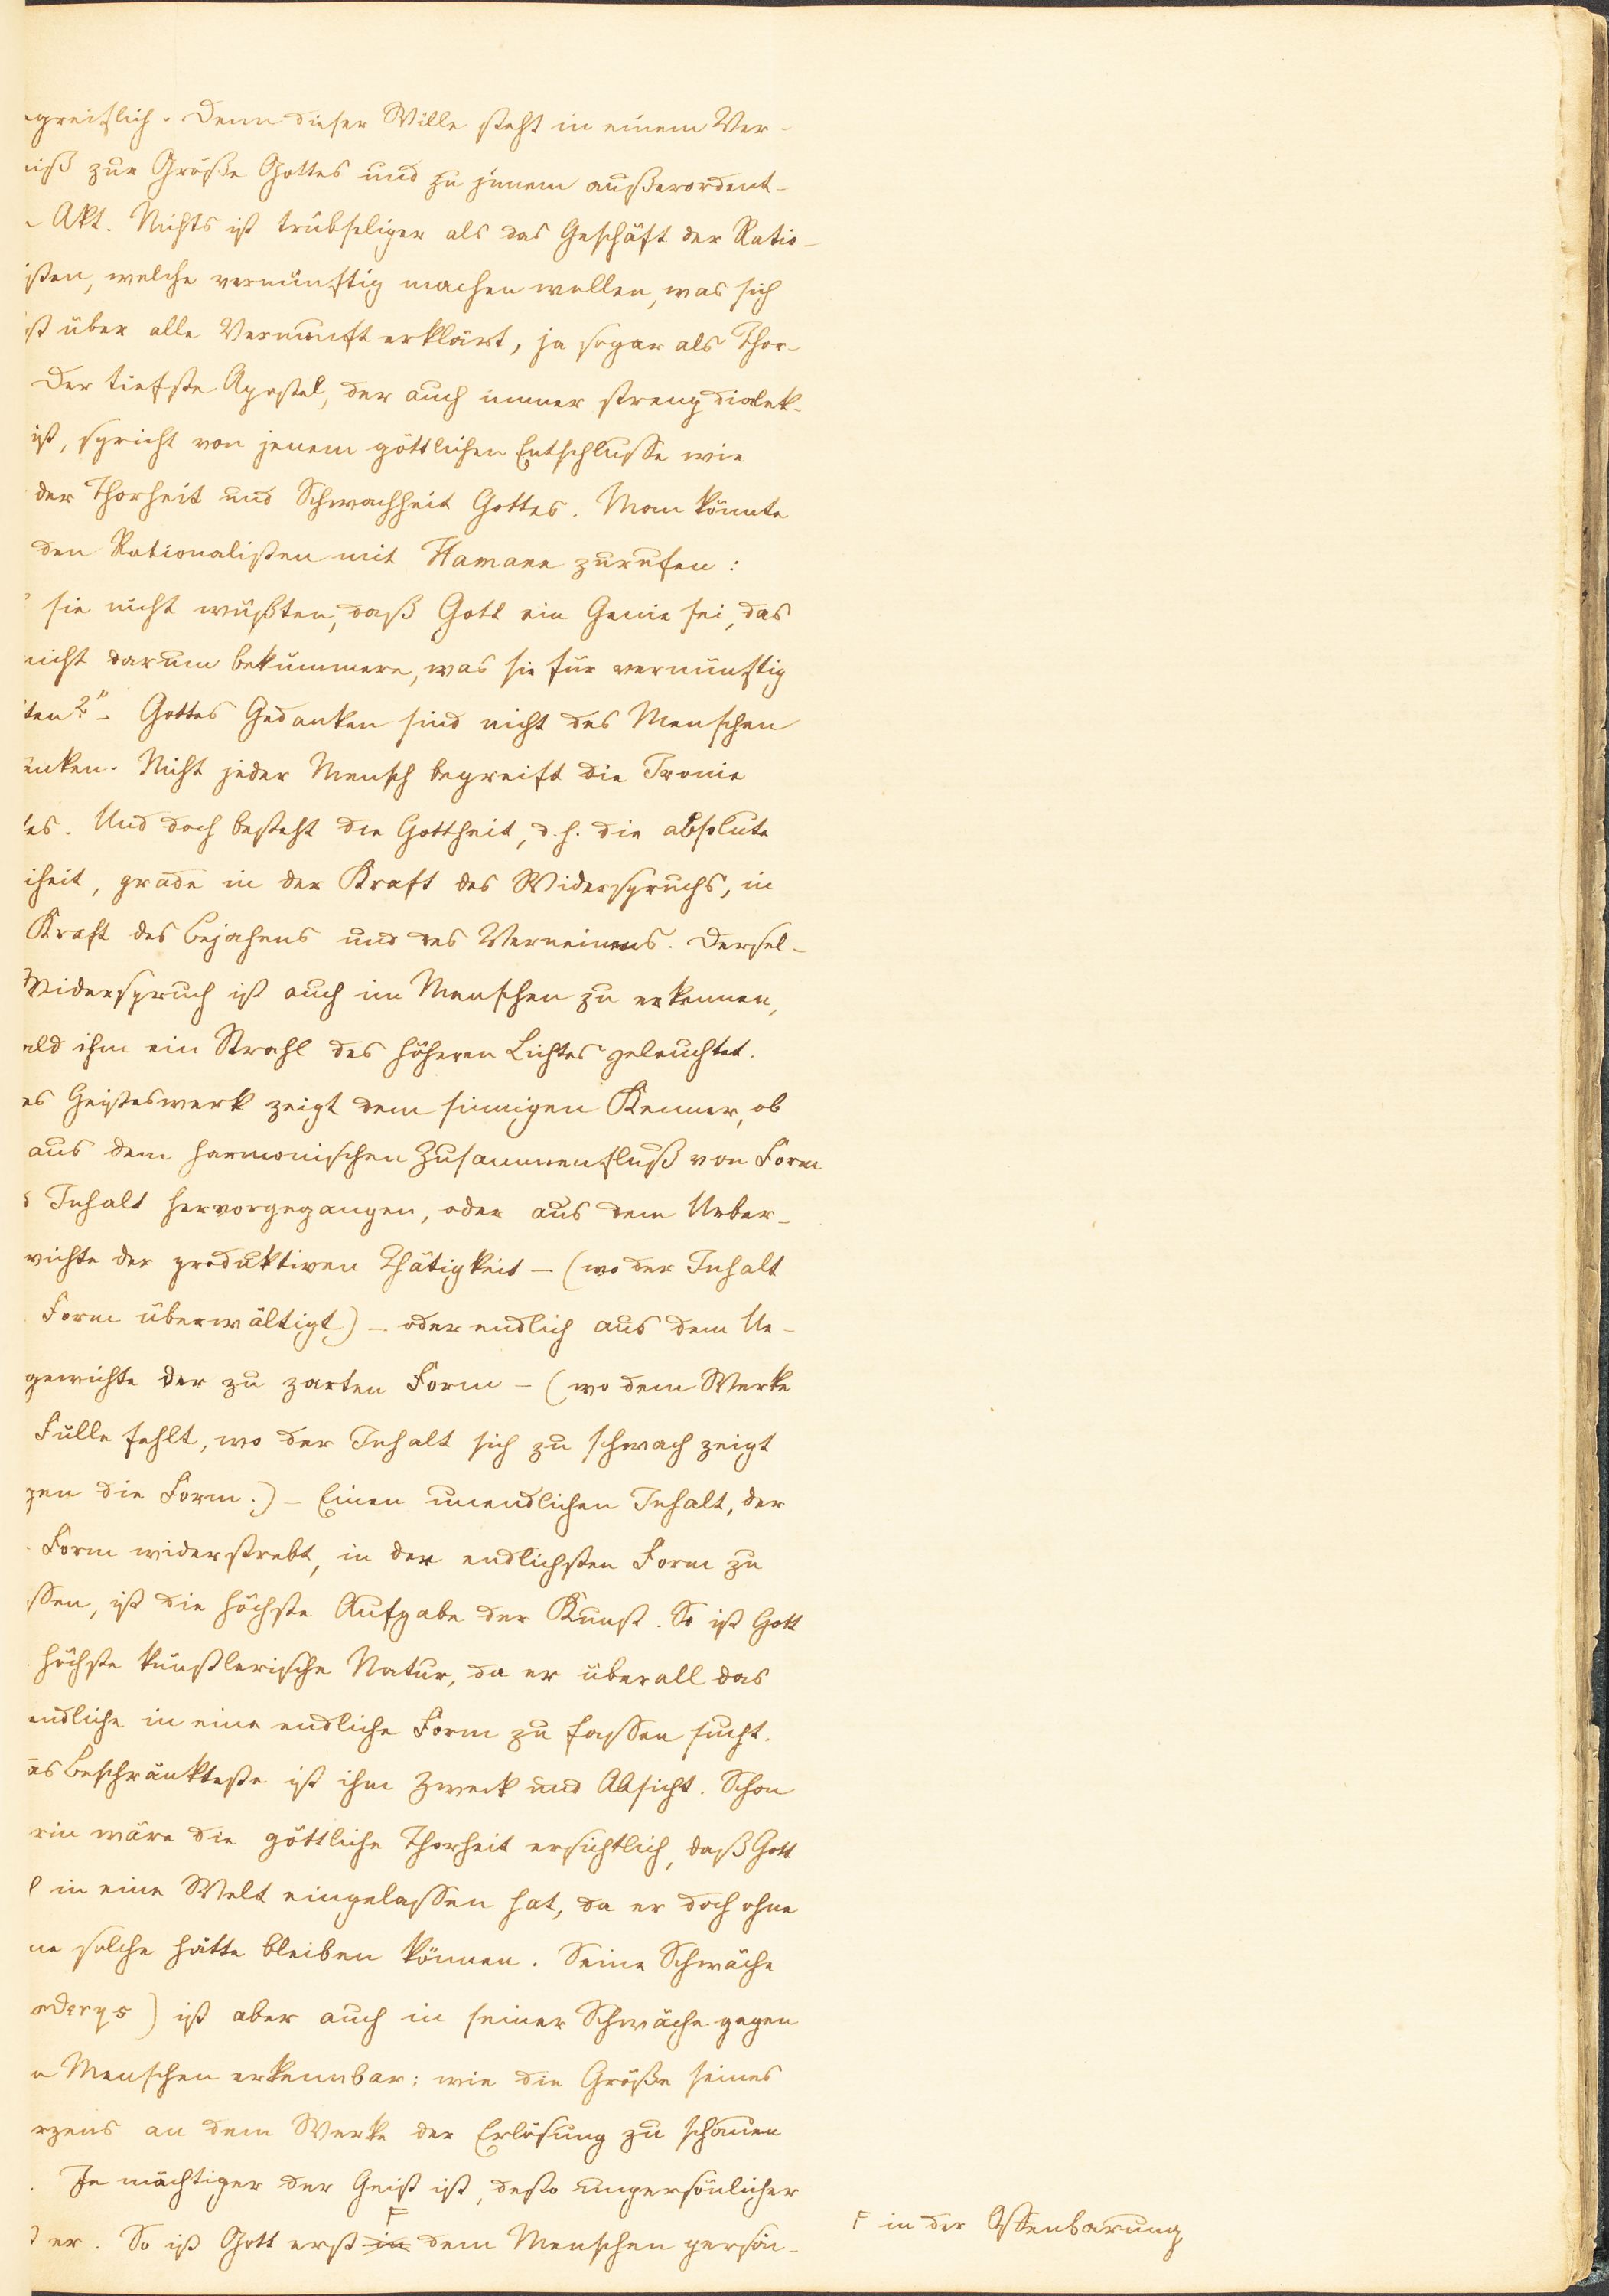 greiflich. Denn dieser Wille steht in einem Ver-
niß zur Größe Gottes und zu jenem außerordent-
Akt. Nichts ist trübseliger als das Geschäft der Ratio-
isten, welche vernünftig machen wollen, was sich
st über alle Vernunft erklärt, ja sogar als Thor-
Der tiefste Apostel, der auch immer streng dialek-
ist, spricht von jenem göttlichen Entschlusse wie
der Thorheit und Schwachheit Gottes. Man könnte
den Rationalisten mit Hamann zurufen:
sie nicht wüßten, daß Gott ein Genie sei, das
nicht darum bekümmere, was sie für vernünftig
ten?" - Gottes Gedanken sind nicht des Menschen
anken. Nicht jeder Mensch begreift die Ironie
tes. Und doch besteht die Gottheit, d. h. die absolute
iheit, grade in der Kraft des Widerspruchs, in
Kraft des Bejahens und des Verneinens. Dersel-
Widerspruch ist auch im Menschen zu erkennen,
ald ihm ein Strahl des höheren Lichtes geleuchtet.
es Geisteswerk zeigt dem sinnigen Kenner, ob
aus dem harmonischen Zusammenfluß von Form
d Inhalt hervorgegangen, oder aus dem Ueber-
wichte der produktiven Thätigkeit - (wo der Inhalt
Form überwältigt) - oder endlich aus dem Ue-
gewichte der zu zarten Form - (wo dem Werke
Fülle fehlt, wo der Inhalt sich zu schwach zeigt
gen die Form.) - Einen unendlichen Inhalt, der
Form widerstrebt, in der endlichsten Form zu
ssen, ist die höchste Aufgabe der Kunst. So ist Gott
höchste künstlerische Natur, da er überall das
endliche in eine endliche Form zu fassen sucht.
as Beschränkteste ist ihm Zweck und Absicht. Schon
rin wäre die göttliche Thorheit ersichtlich, daß Gott
h in eine Welt eingelassen hat, da er doch ohne
ne solche hätte bleiben können. Seine Schwäche
) ist aber auch in seiner Schwäche gegen
n Menschen erkennbar: wie die Größe seines
rzens an dem Werke der Erlösung zu schauen
. Je mächtiger der Geist ist, desto unpersönlicher
d er. So ist Gott erst in dem Menschen persön-
F in der Offenbarung